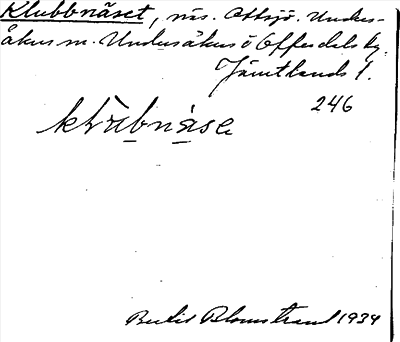 Klubbnäset, näs. Ottsjö. Unders-
åkers sn. Undersåkers o Offerdals tg.
Jämtlands l.
246
Bertil Blomstrand 1934